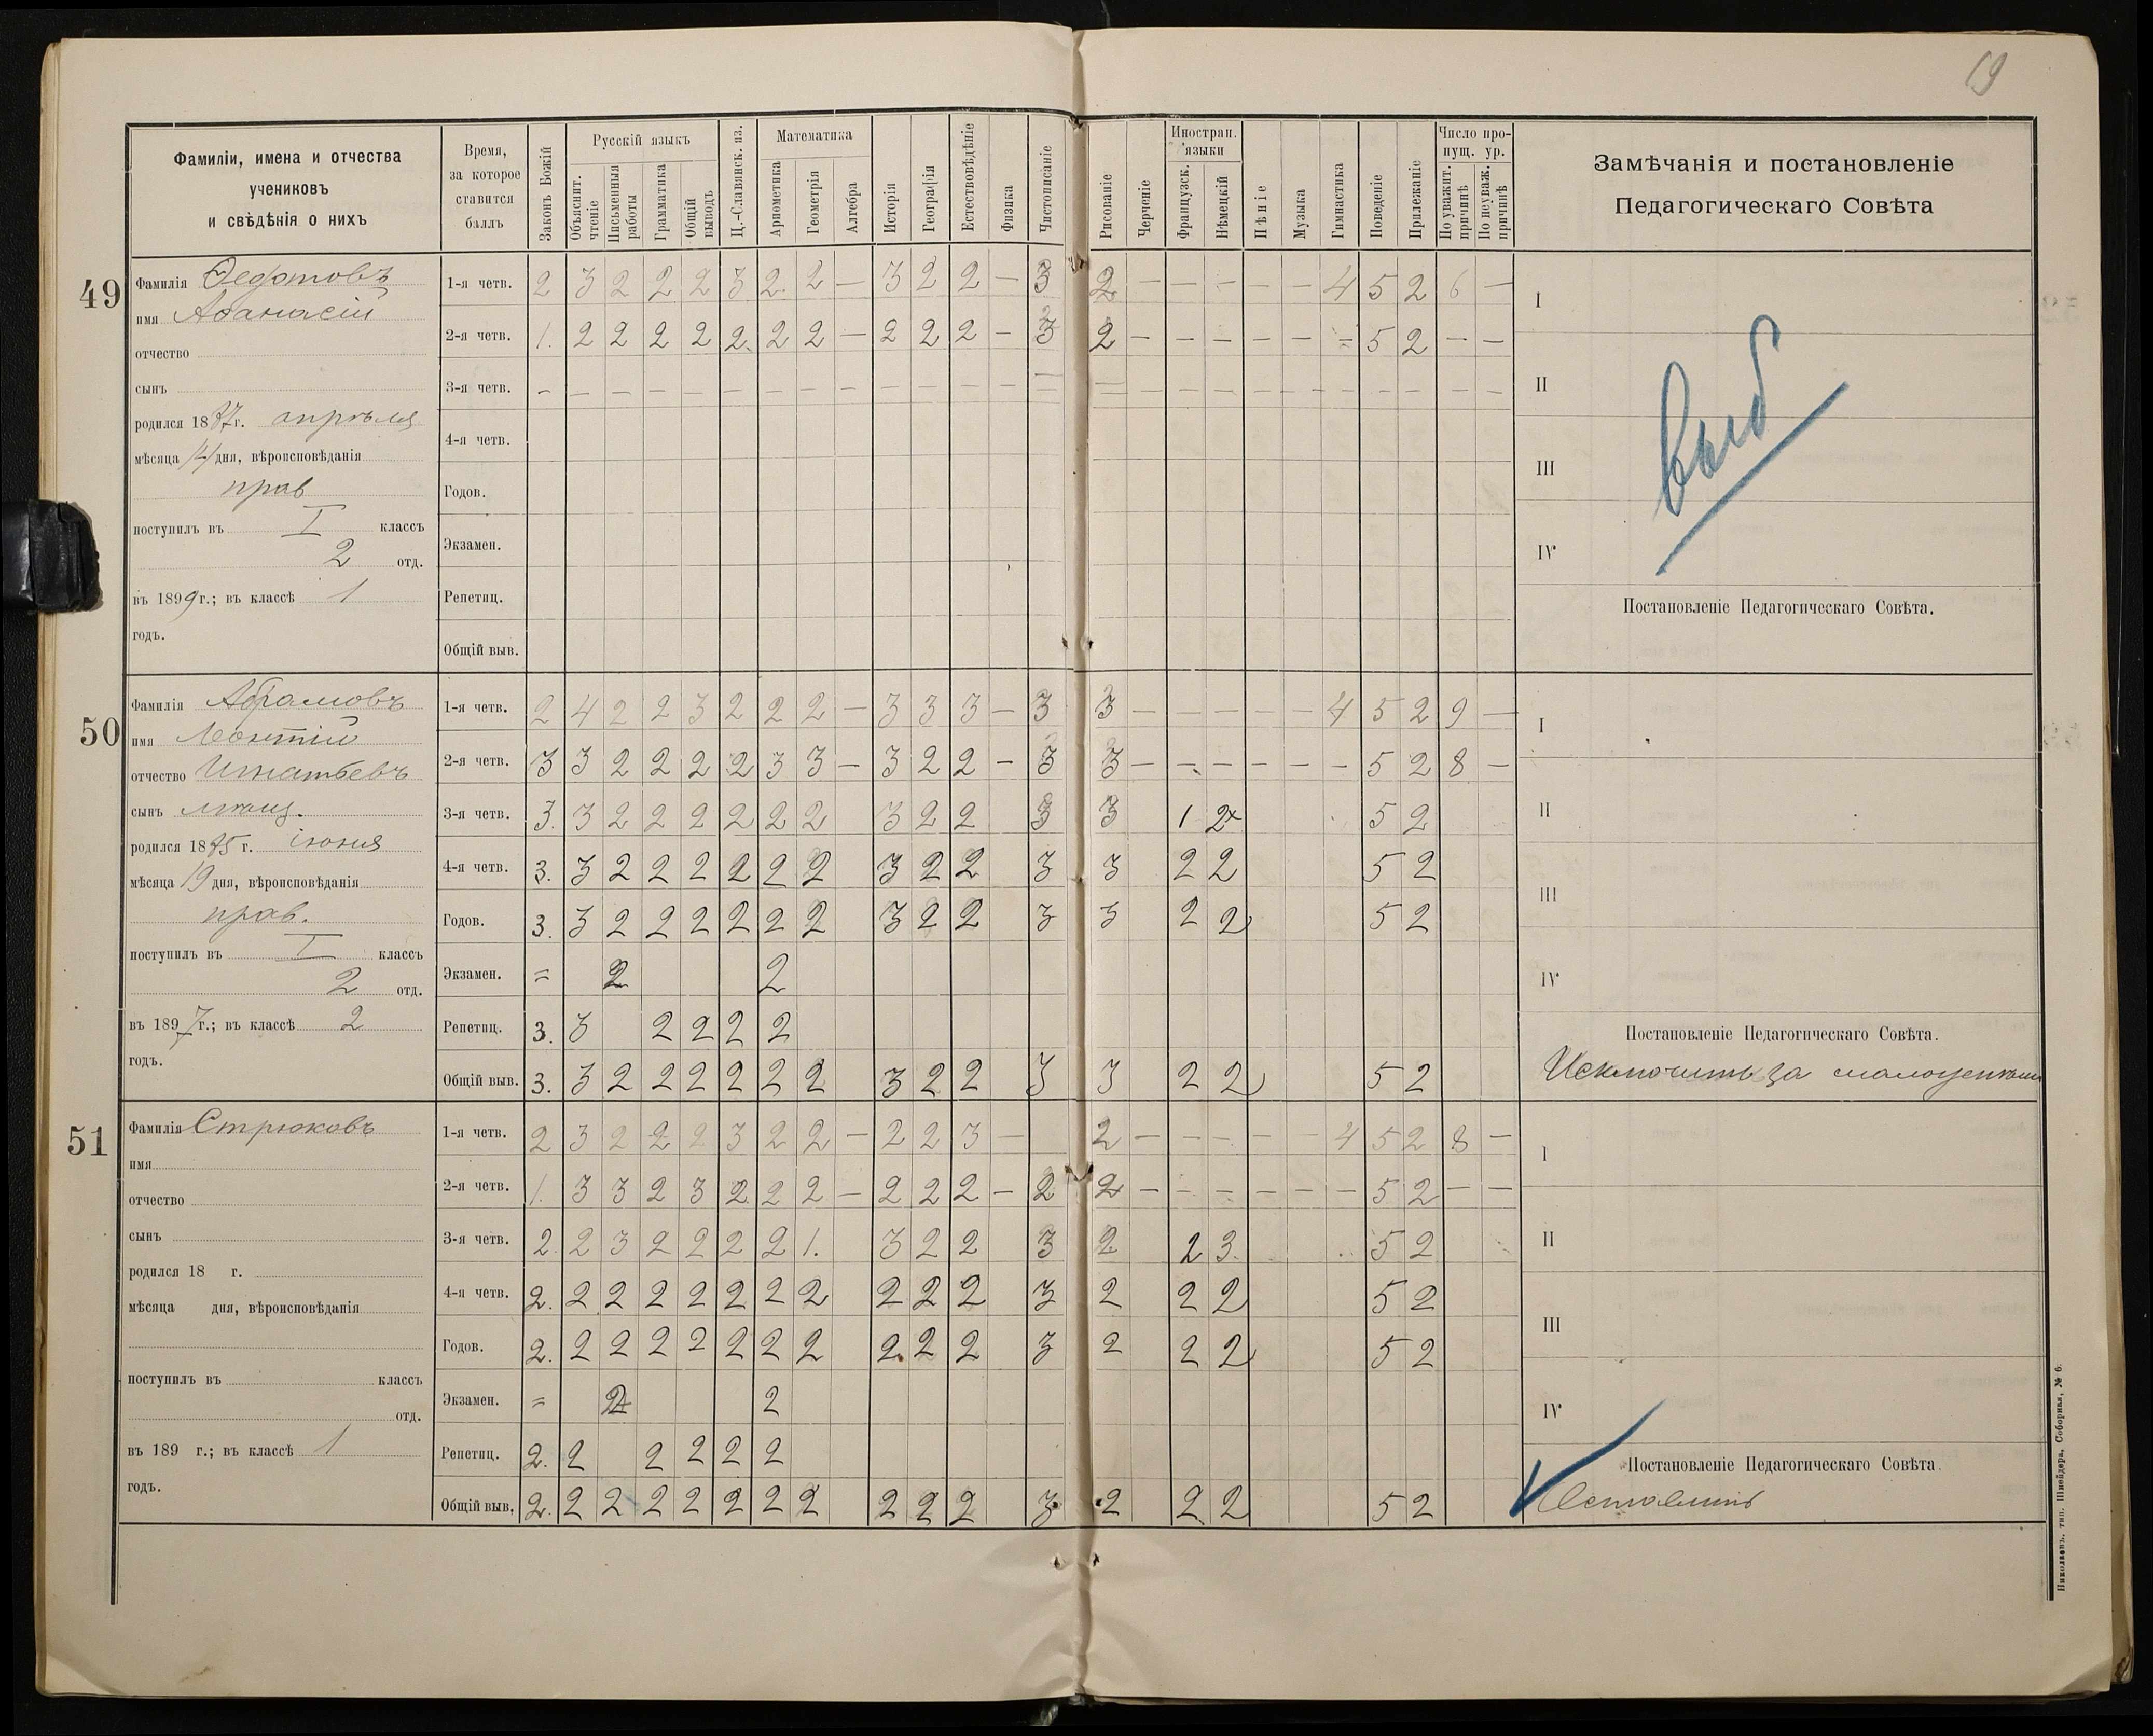 19
Фамиліи, имена и отчества
учениковъ
и свѣдѣнія о нихъ
Время,
за которое
ставится
баллъ
Законъ Божій
Русскій языкъ
Объяснит. чтеніе
Письменныя работы
Грамматика
Общій выводъ
Ц.-Славянск. яз.
Математика
Ариѳметика
Геометрія
Алгебра
Исторія
Географія
Естествовѣдѣніе
Физика
Чистописаніе
Рисованіе
Черченіе
Иностран. языки
Французск.
Нѣмецкій
Пѣніе
Музыка
Гимнастика
Поведеніе
Прилежаніе
Число про-
пущ. ур.
По уважит. причинѣ
По неуваж. причинѣ
Замѣчанія и постановленіе
Педагогическаго Совѣта
49
Фамилія Ѳедотовъ
имя Аѳанасій
отчество
сынъ
родился 1887 г. апрѣля
мѣсяца 14 дня, вѣроисповѣданія
прав
поступилъ въ I классъ
2 отд.
въ 1899 г.; въ классѣ 1
годъ.
1-я четв. 2 3 2 2 2 3 2. 2 — 3 2 2 — 3 2 — — — — — 4 5 2 6 —
2-я четв. 1. 2 2 2 2 2. 2 2 — 2 2 2 — 3 2 — — — — — — 5 2 — —
3-я четв. — — — — — — — — — — — — — — — — — — — — — — — — —
4-я четв.
Годов.
Экзамен.
Репетиц.
Общій выв.
I
II
III
IV
выб
Постановленіе Педагогическаго Совѣта.
50
Фамилія Абрамовъ
имя Леонтій
отчество Игнатьевъ
сынъ мѣщ.
родился 1885 г. іюня
мѣсяца 19 дня, вѣроисповѣданія
прав.
поступилъ въ I классъ
2 отд.
въ 1897 г.; въ классѣ 2
годъ.
1-я четв. 2 4 2 2 3 2 2 2 — 3 3 3 — 3 3 — — — — — 4 5 2 9 —
2-я четв. 3 3 2 2 2 2 3 3 — 3 2 2 — 3 3 — — — — — — 5 2 8 —
3-я четв. 3. 3 2 2 2 2 2 2 3 2 2 3 3 1 2 5 2
4-я четв. 3. 3 2 2 2 2 2 2 3 2 2 3 3 2 2 5 2
Годов. 3. 3 2 2 2 2 2 2 3 2 2 3 3 2 2 5 2
Экзамен. = 2 2
Репетиц. 3. 3 2 2 2 2
Общій выв. 3. 3 2 2 2 2 2 2 3 2 2 3 3 2 2 5 2
I
II
III
IV
Постановленіе Педагогическаго Совѣта.
Исключить за
51
Фамилія Стрюковъ
имя
отчество
сынъ
родился 18 г.
мѣсяца дня, вѣроисповѣданія
поступилъ въ классъ
отд.
въ 189 г.; въ классѣ 1
годъ.
1-я четв. 2 3 2 2 2 3 2 2 — 2 2 3 — 2 — — — — — 4 5 2 8 —
2-я четв. 1. 3 3 2 3 2 2 2 — 2 2 2 — 2 2 — — — — — — 5 2 — —
3-я четв. 2. 2 3 2 2 2 2 1. 3 2 2 3 2 2 3. 5 2
4-я четв. 2. 2 2 2 2 2 2 2 2 2 2 3 2 2 2 5 2
Годов. 2. 2 2 2 2 2 2 2 2. 2 2 3 2 2 2 5 2
Экзамен. = 2 2
Репетиц. 2. 2 2 2 2 2
Общій выв. 2. 2 2 2 2 2 2 2 2 2 2 3 2 2 2 5 2
I
II
III
IV
Постановленіе Педагогическаго Совѣта.
Оставить
Николаевъ. тип. Шнейдера, Соборная, № 6.